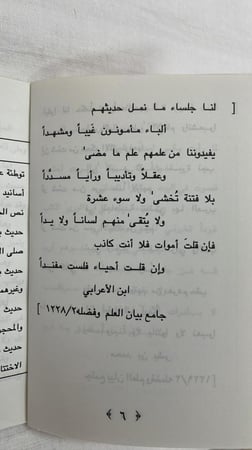 [ لنا جلساء ما نمل حديثهم
ألباء مأمونون غَيباً ومشهداً
يفيدوننا من علمهم علم ما مضى
وعقلاً وتأديباً ورأياً مسدَّداً
بلا فتنة تُخشى ولا سوء عشرة
ولا يُتقى منهم لساناً ولا يداً
فإن قلتَ أموات فلا أنت كاذب
وإن قلت أحياء فلست مفنداً
ابن الأعرابي
جامع بيان العلم وفضله ١٢٢٨/٢ ]
﴿ ٦ ﴾
توطئة
أسانيد
نص الم
حديث
صلى ال
حديث
وغيرهم
والمحج
حديث
الاختتا